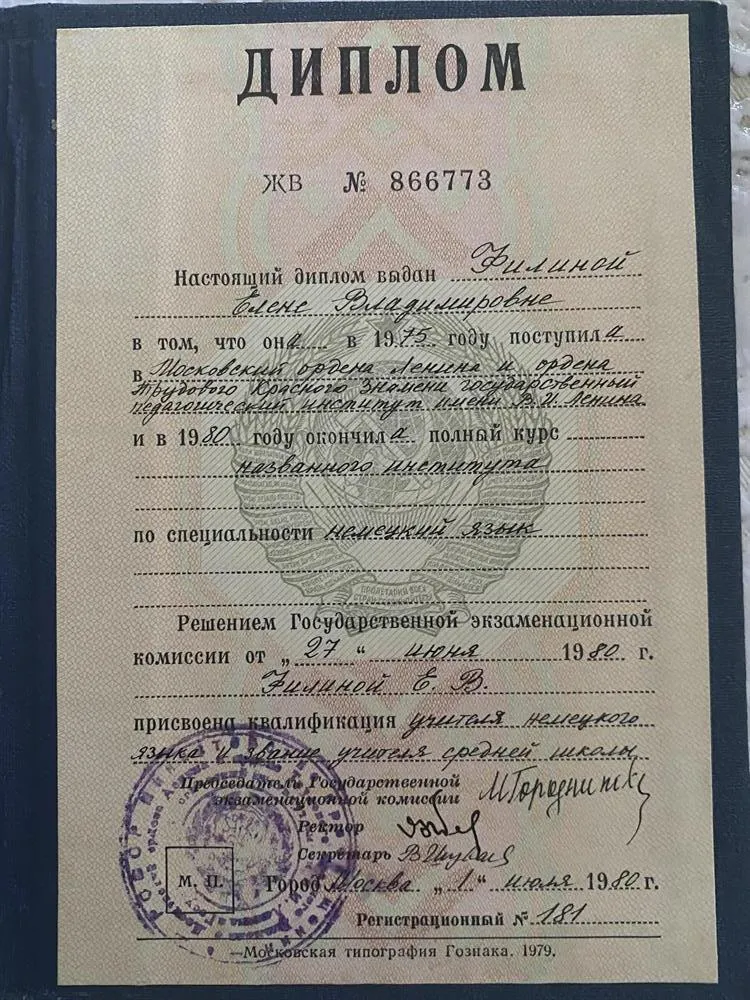 ДИПЛОМ
ЖВ № 866773
Настоящий диплом выдан Филиной
Елене Владимировне
в том, что она в 1975 году поступила
в Московский ордена Ленина и ордена
Трудового Красного Знамени государственный
педагогический институт имени В.И. Ленина
и в 1980 году окончила полный курс
названного института
по специальности немецкий язык
ПРОЛЕТАРИИ ВСЕХ
СТРАН СОЕДИНЯЙТЕСЬ
Решением Государственной экзаменационной
комиссии от „27“ июня 1980 г.
Филиной Е. В.
присвоена квалификация учителя немецкого
языка и звание учителя средней школы
Председатель Государственной
экзаменационной комиссии
Ректор
Секретарь
М. П.
Город Москва „1“ июля 1980 г.
Регистрационный № 181
Московская типография Гознака. 1979.